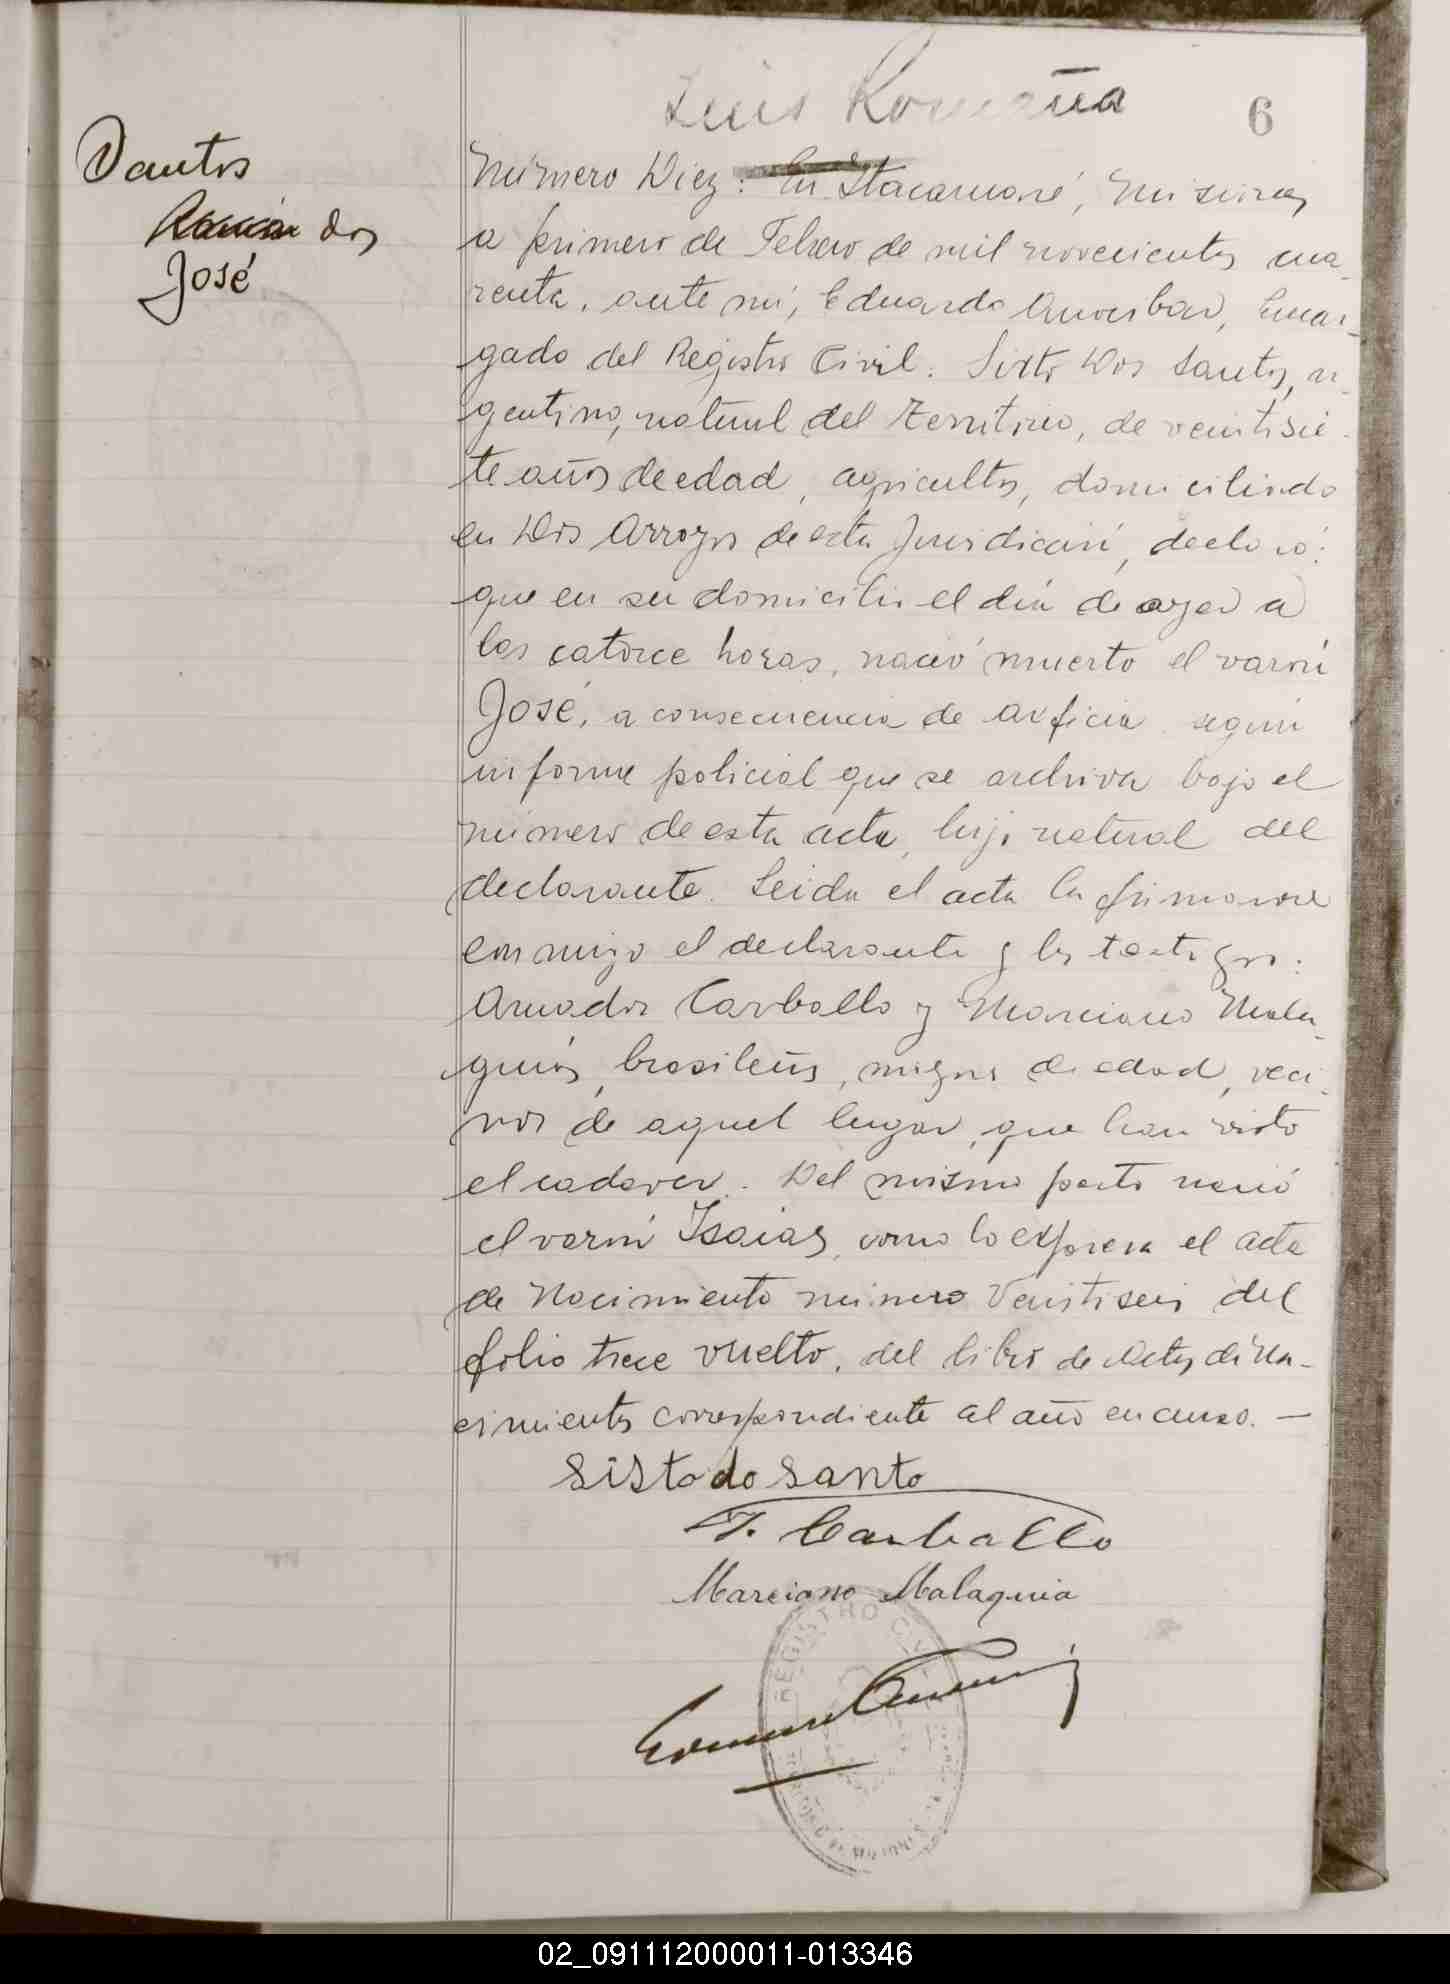 Luis Romaña
6
Santos
dos
José
Número Diez: En Itacaruaré, Misiones
a primero de Febrero de mil novecientos cua-
renta, ante mí, Eduardo Encar-
gado del Registro Civil: Sixto Dos Santos, ar-
gentino, natural del Territorio, de veintisie-
te años de edad, agricultor, domiciliado
en Dos Arroyos de esta Jurisdicción, declaró:
que en su domicilio el día de ayer a
las catorce horas, nació muerto el varón
José, a consecuencia de axficia según
informe policial que se archiva bajo el
número de esta acta, hijo natural del
declarante. Leida el acta la firmaron
conmigo el declarante y los testigos:
Amador Carballo y Marciano Mala-
quias, brasileños, mayores de edad, veci-
nos de aquel lugar, que han visto
el cadaver. Del mismo parto nació
el varón Isaias, como lo expresa el acta
de Nacimiento número Veintiseis del
folio trece vuelto, del libro de Actas de Na-
cimientos correspondiente al año en curso. —
Sisto do Santo
T. Carballo
Marciano Malaquia
REGISTRO CIVIL
02_091112000011-013346